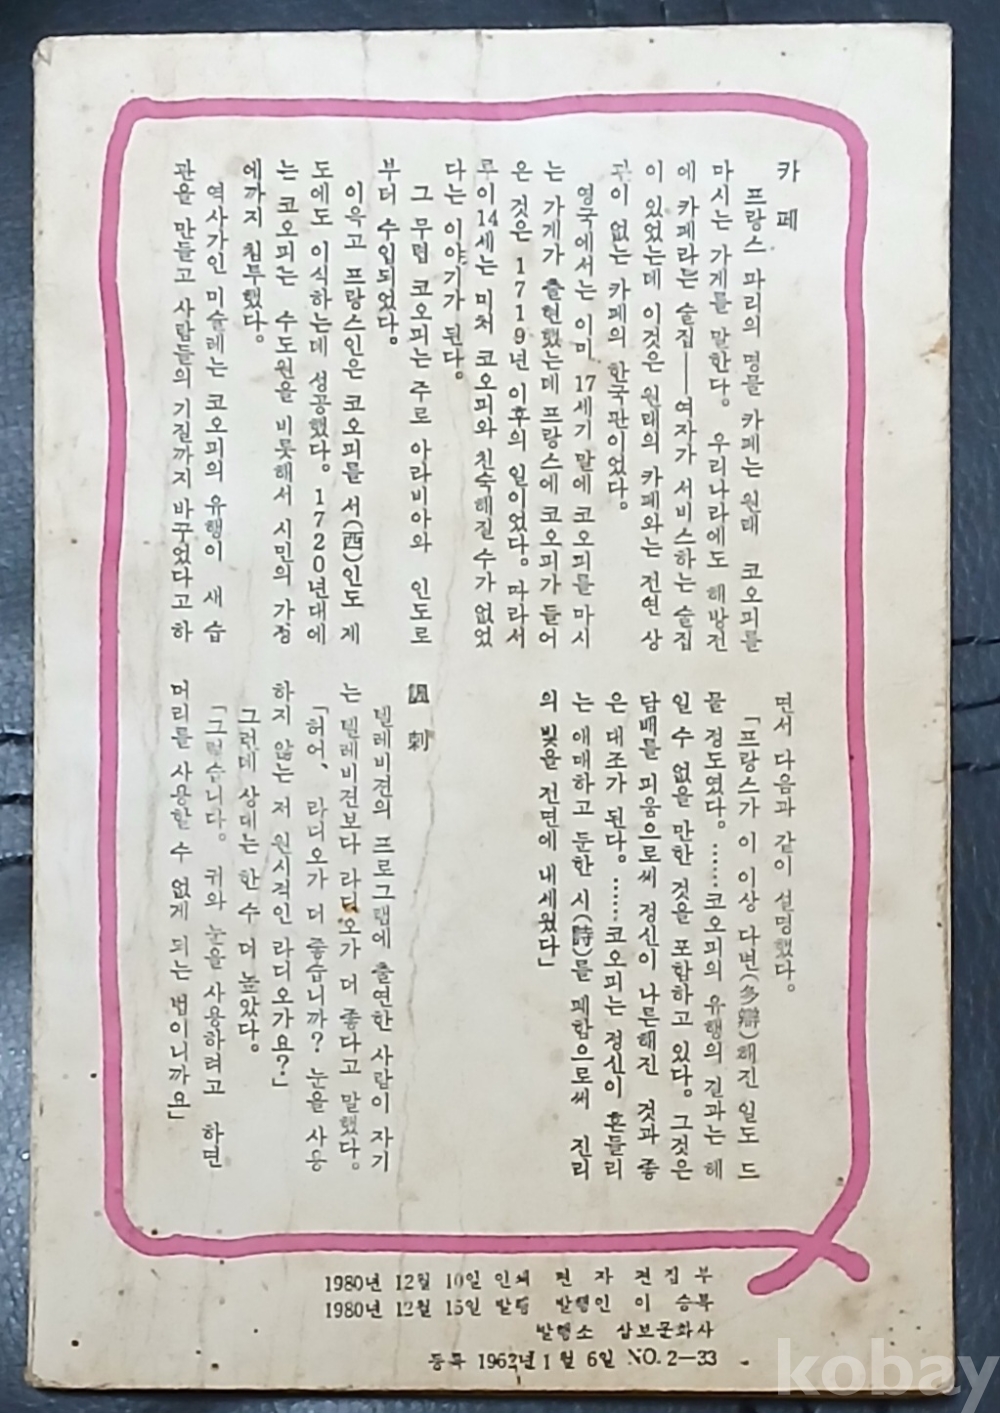 카페
프랑스 파리의 명물 카페는 원래 코오피를
마시는 가게를 말한다。 우리나라에도 해방전
에 카페라는 술집──여자가 서비스하는 술집
이 있었는데 이것은 원래의 카페와는 전연 상
관이 없는 카페의 한국판이었다。
영국에서는 이미 17세기 말에 코오피를 마시
는 가게가 출현했는데 프랑스에 코오피가 들어
은 것은 1719년 이후의 일이었다。따라서
루이 14세는 미처 코오피와 친숙해질 수가 없었
다는 이야기가 된다。
그 무렵 코오피는 주로 아라비아와 인도로
부터 수입되었다。
이윽고 프랑스인은 코오피를 서(西)인도 제
도에도 이식하는데 성공했다。1720년대에
는 코오피는 수도원을 비롯해서 시민의 가정
에까지 침투했다。
역사가인 미슐레는 코오피의 유행이 새 습
관을 만들고 사람들의 기질까지 바꾸었다고 하
면서 다음과 같이 설명했다。
「프랑스가 이 이상 다변(多辯)해진 일도 드
물 정도였다。……코오피의 유행의 결과는 헤
일 수 없을 만한 것을 포함하고 있다。그것은
담배를 피움으로써 정신이 나른해진 것과 좋
은 대조가 된다。……코오피는 정신이 흔들리
는 애매하고 둔한 시(詩)를 폐합으로써 진리
의 빛을 전면에 내세웠다」
諷刺
텔레비젼의 프로그램에 출연한 사람이 자기
는 텔레비젼보다 라디오가 더 좋다고 말했다。
「허어、 라디오가 더 좋습니까? 눈을 사용
하지 않는 저 원시적인 라디오가요?」
그런데 상대는 한 수 더 높았다。
「그렇습니다。 귀와 눈을 사용하려고 하면
머리를 사용할 수 없게 되는 법이니까요」
1980년 12월 10일 인쇄 편 자 편집부
1980년 12월 15일 발행 발행인 이 승복
발행소 삼보문화사
등록 1962년 1월 6일 NO. 2─33
kobay